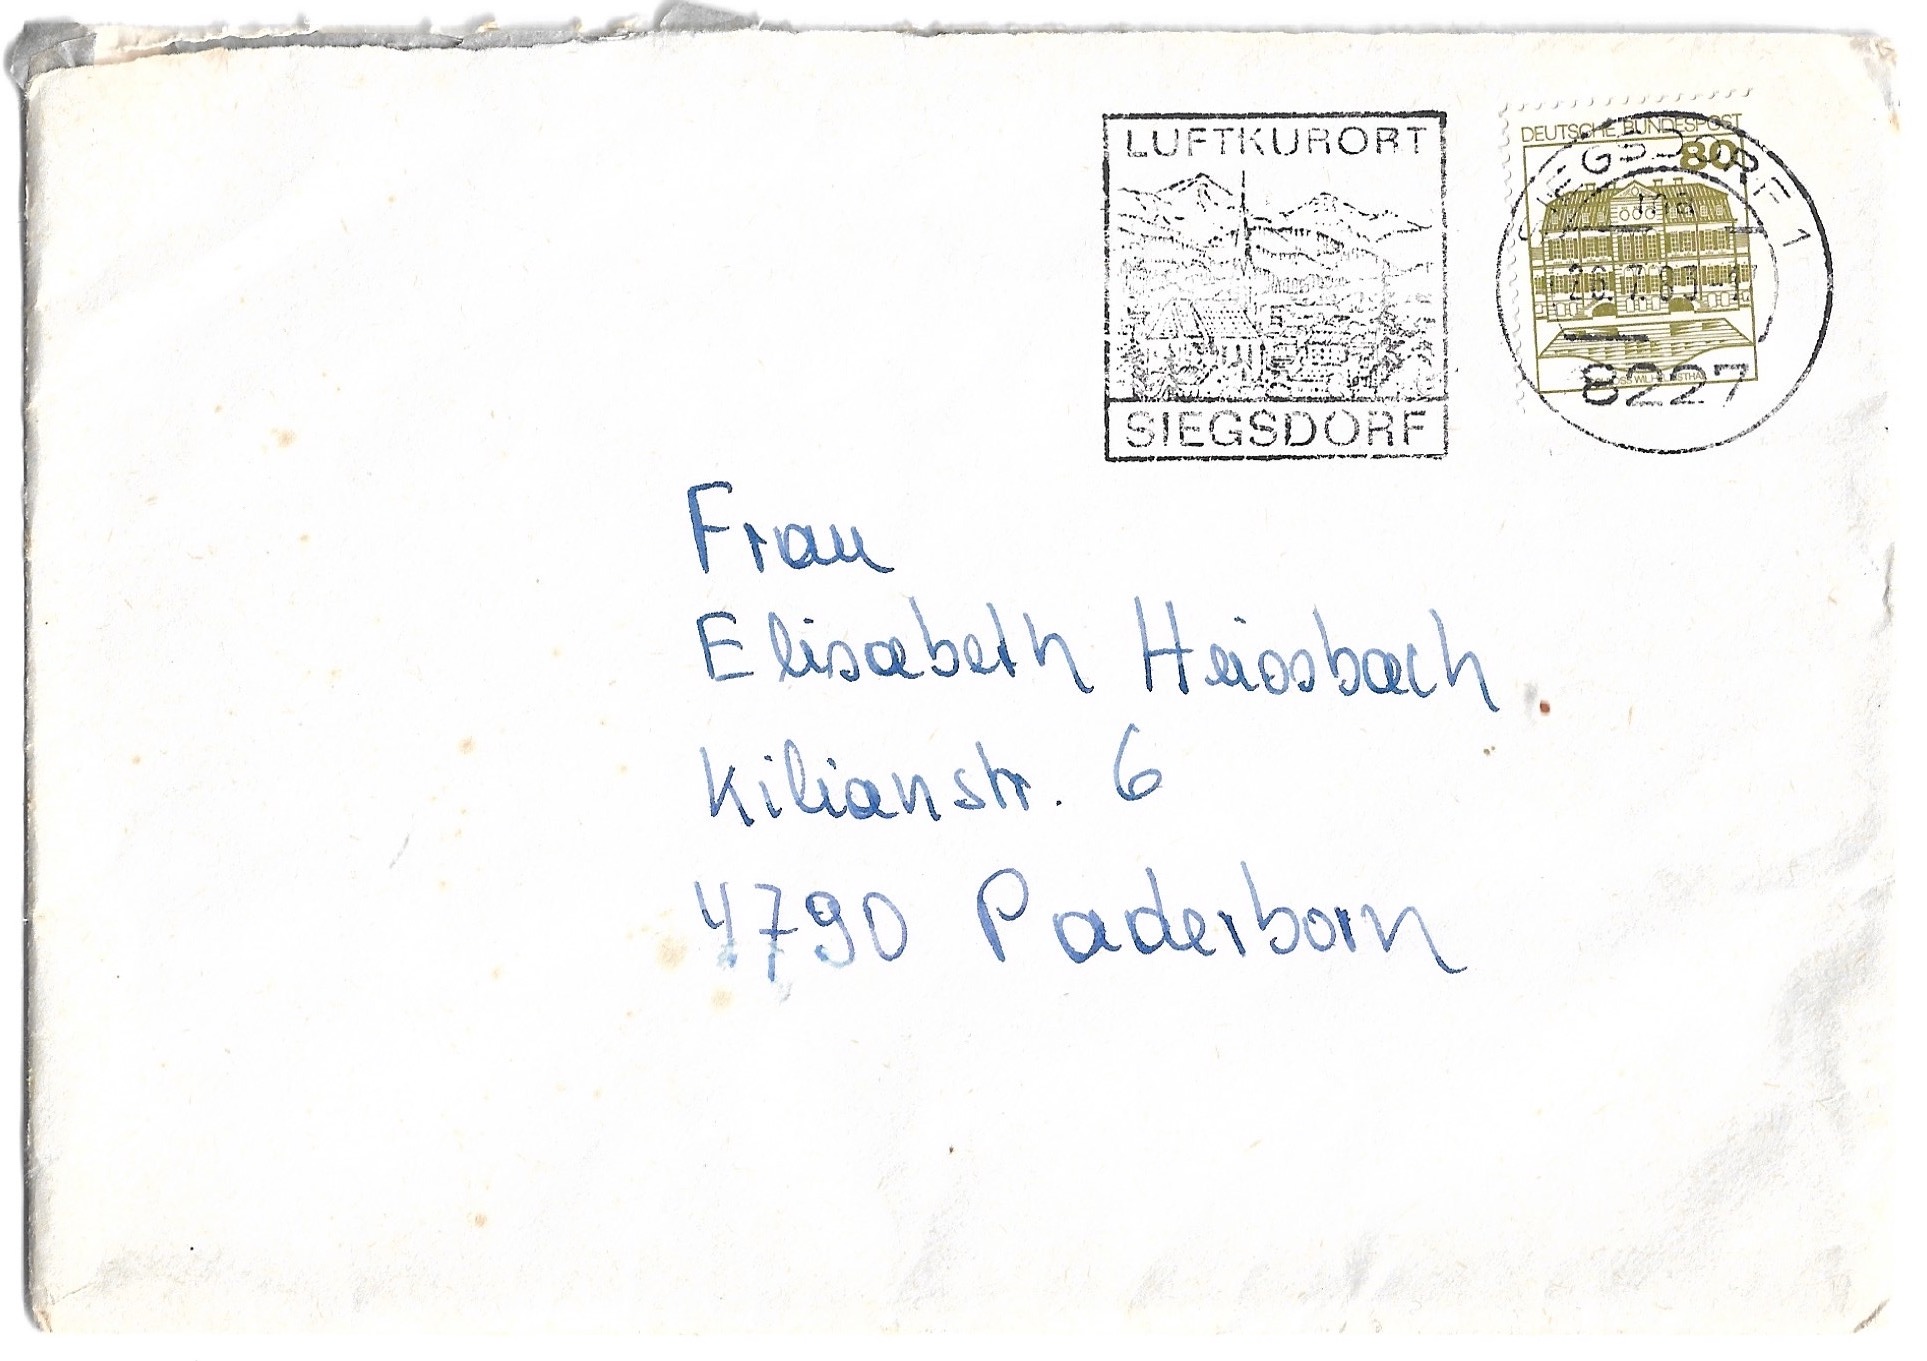 LUFTKURORT
SIEGSDORF
DEUTSCHE BUNDESPOST
80
SIEGSDORF 1
8227
Frau
Elisabeth Heissbach
Kilianstr. 6
4790 Paderborn